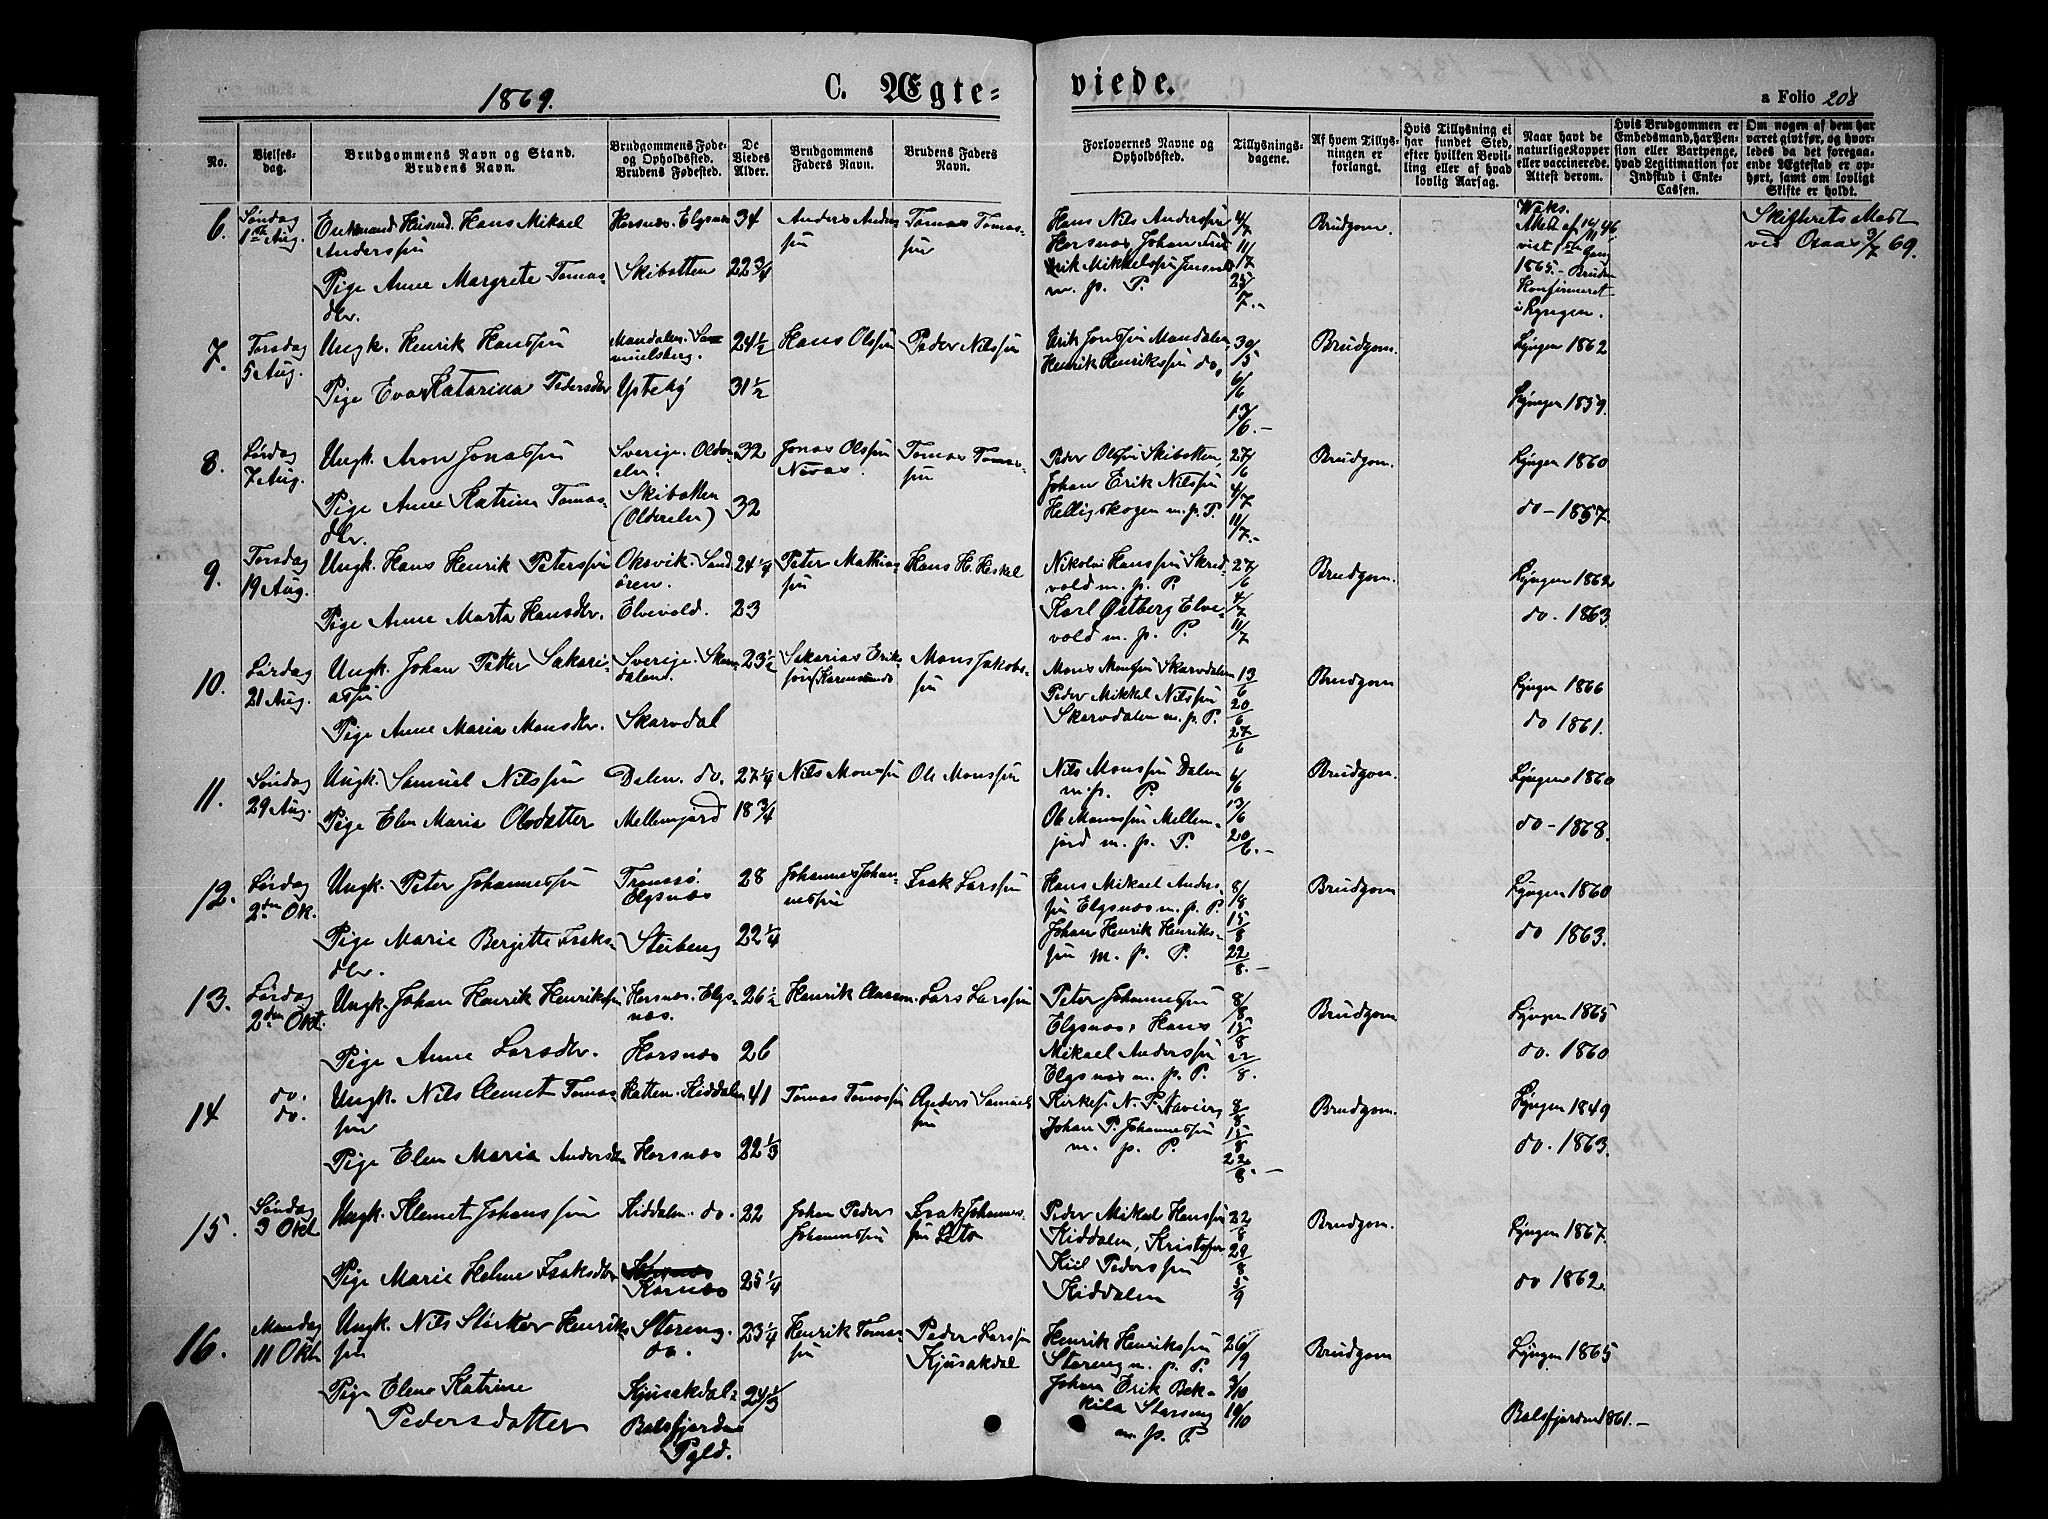 1869.
C. Ægte-
viede.
a Folio 208
No.
Vielses-
dag.
Brudgommens Navn og Stand.
Brudens Navn.
Brudgommens Føde-
og Opholdssted.
Brudens Fødested.
De
Viedes
Alder.
Brudgommens
Faders Navn.
Brudens Faders
Navn.
Forlovernes Navne og
Opholdssted.
Tillysnings-
dagene.
Af hvem Tillys-
ningen er
forlangt.
Hvis Tillysning ei
har fundet Sted,
efter hvilken Bevil-
ling eller af hvad
lovlig Aarsag.
Naar havt de
naturlige Kopper
eller vaccinerede.
Attest derom.
Hvis Brudgommen er
Embedsmand, har Pen-
sion eller Vartpenge,
hvad Legitimation for
Indskud i Enke-
Cassen.
Om nogen af dem har
været givt før, og hvor-
ledes da det foregaa-
ende Ægteskab er op-
hørt, samt om lovligt
Skifte er holdt.
6.
Søndag
1ste Aug.
Enkemand Husmd. Hans Mikael
Anderssøn
Pige Anne Margrete Tomas-
dtr.
Horsnæs. Elgsnæs
Skibotten
34
22 3/4
Anders Anders
søn
Tomas Tomas-
søn
Hans Nils Anderssøn
Horsnæs, Johan
Erik Mikkelssøn
m. p. P.
4/7
11/7
25/7.-
Brudgom.
Vaks.
Attest af 14/11 46
vist 1ste Gang
1865. - Bruden
konfirmeret
i Lyngen.
Skifterets Attest
ved Aars 3/7 69.
7.
Torsdag
5 Aug.
Ungk. Henrik Hanssøn
Pige Eva Katarina Pedersdtr
Mandalen. Sa-
muelsberg.
Ysteby
24 1/2
31 1/2
Hans Olssøn
Peder Nilssøn
Erik Jonssøn Mandalen
Henrik Henrikssøn do.
30/5
6/6
13/6.-
Brudgom.
Lyngen 1862
Lyngen 1859.
8.
Lørdag
7 Aug.
Ungk. Aron Jonassøn
Pige Anne Katrine Tomas-
dtr.
Sverige. Older-
elv.
Skibotten
(Olderelv)
32
32
Jonas Olssøn
Nivas.
Tomas Tomas-
søn
Peder Olssøn Skibotten,
Johan Erik Nilssøn
Helligskogen m. p. P.
27/6
4/7
11/7.-
Brudgom.
Lyngen 1860
do - 1857.
9.
Torsdag
19 Aug.
Ungk. Hans Henrik Peterssøn
Pige Anne Marta Hansdtr.
Oksvik. Sand-
ören.
Elvevold.
24 1/4
23
Peter Mathias-
søn
Hans H. Heskel
Nikolai Hanssøn Skred-
vold m. p. P.
Karl Østberg Elve-
vold m. p. P.
27/6
4/7
11/7
Brudgom.
Lyngen 1862
do. 1863.
10.
Lørdag
21 Aug.
Ungk. Johan Petter Sakari-
assøn
Pige Anne Maria Monsdtr.
Sverige. Skarv-
dalen.
Skarvdal
23 1/2
Sakarias Eriks-
søn (Karesuando
Mons Jakobs-
søn
Mons Monssøn Skarvdalen
Peder Mikkel Nilssøn
Skarvdalen m. p. P.
13/6
20/6
27/6
Brudgom
Lyngen 1866
do 1861.
11.
Søndag
29 Aug.
Ungk. Samuel Nilssøn
Pige Elen Maria Olsdatter
Dalen. do.
Mellemjord
27 1/4
18 3/4
Nils Monssøn
Ole Monssøn
Nils Monssøn Dalen
m. p. P.
Ole Monssøn Mellem-
jord m. p. P.
6/6
13/6
20/6.-
Brudgom.
Lyngen 1860
do - 1868.
12.
Lørdag
2den Ok.
Ungk. Peter Johannessøn
Pige Marie Bergitte Isaks-
dtr.
Tromsø.
Elgsnæs
Steibeng
28
22 1/4
Johannes Johan-
nessøn
Isak Larssøn
Hans Mikael Anders-
søn Elgsnæs m. p. P.
Johan Henrik Henriks-
søn m. p. P.
8/8
15/8
22/8.-
Brudgom
Lyngen 1860
do 1863.
13.
Lørdag
2den Okt.
Ungk. Johan Henrik Henrikssøn
Pige Anne Larsdtr.
Horsnæs. Elgs-
næs.
Horsnæs
26 1/2
26
Henrik
Lars Larssøn
Peter Johannessøn
Elgsnæs, Hans
Mikael Anderssøn
Elgsnæs m. p. P.
8/8
15/8
22/8.
Brudgom
Lyngen 1865
do. 1860
14
do.
do.
Ungk. Nils Clemet Tomas-
søn
Pige Elen Maria Andersdtr
Hatten. Kiddalen
Horsnæs
41
22 1/3
Tomas Tomassøn
Anders Samuels
søn
Kirkes. N. P.
Johan P. Johannessøn
m. p. P.
8/8
15/8
22/8.-
Brudgom.
Lyngen 1849
do. 1863.
15.
Søndag
3 Okt
Ungk. Klemet Johanssøn
Pige Marie Helene Isaksdtr
Kiddalen. do.
Kornæs
22
25 1/4
Johan Peder
Johannessøn
Isak Johannes-
søn Leto
Peder Mikael Hanssøn
Kiddalen, Kristoffer
Kiil Pederssøn
Kiddalen
22/8
29/8
5/9
Brudgom.
Lyngen 1867.
do 1862.
16.
Mandag
11 Okt
Ungk. Nils Størker Henriks
søn
Pige Elen Katrine
Pedersdatter
Storeng.
do.
Kjusakdal
Balsfjorden
Pgld.
23 1/4
24 1/3
Henrik Tomas-
søn
Peder Larssøn
Kjusakdal
Henrik Henrikssøn
Storeng m. p. P.
Johan Erik Bek-
kila Storeng
m. p. P.
26/9
3/10
10/10
Brudgom
Lyngen 1865
Balsfjorden 1861.-